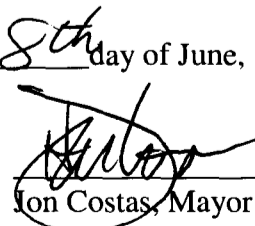 8th day of June,
Jon Costas, Mayor